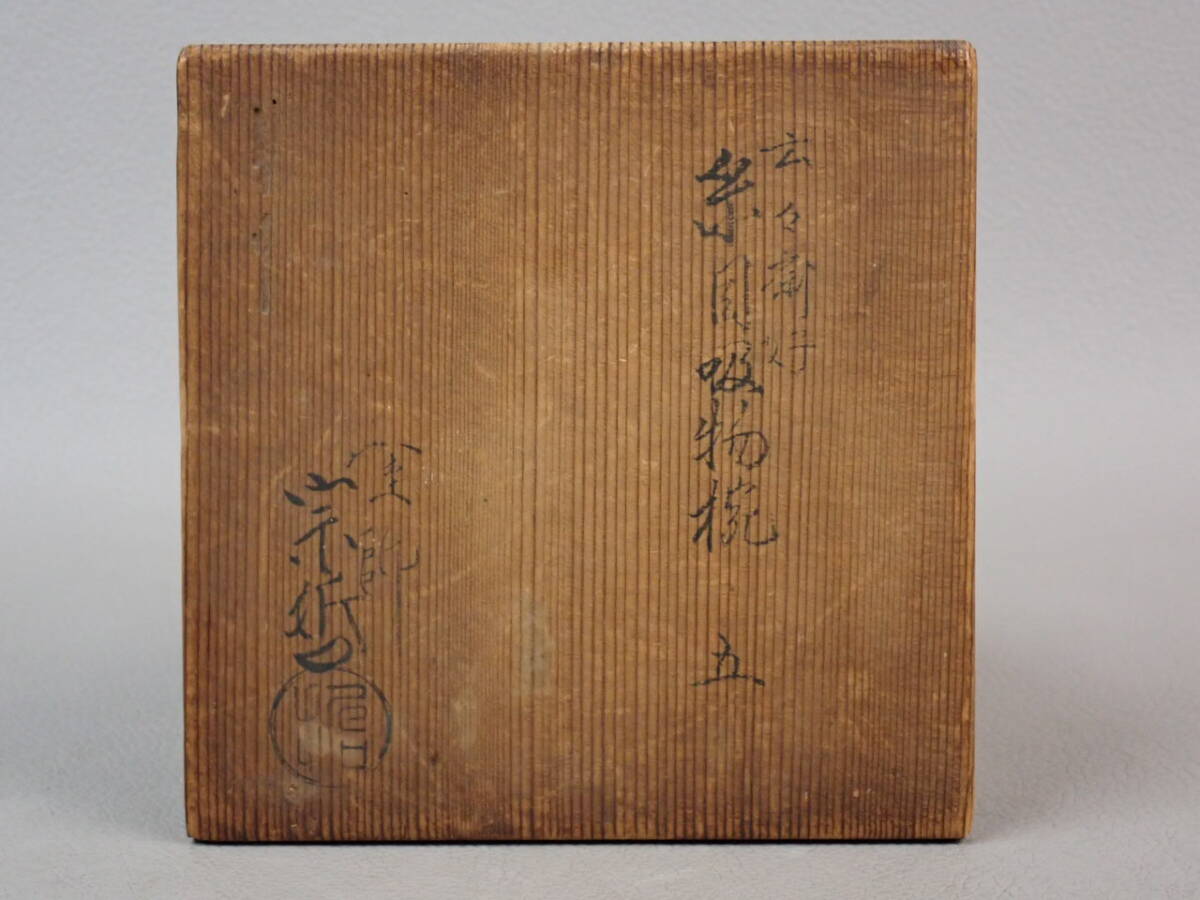 玄々斎好
糸目吸物椀 五
塗師
宗哲